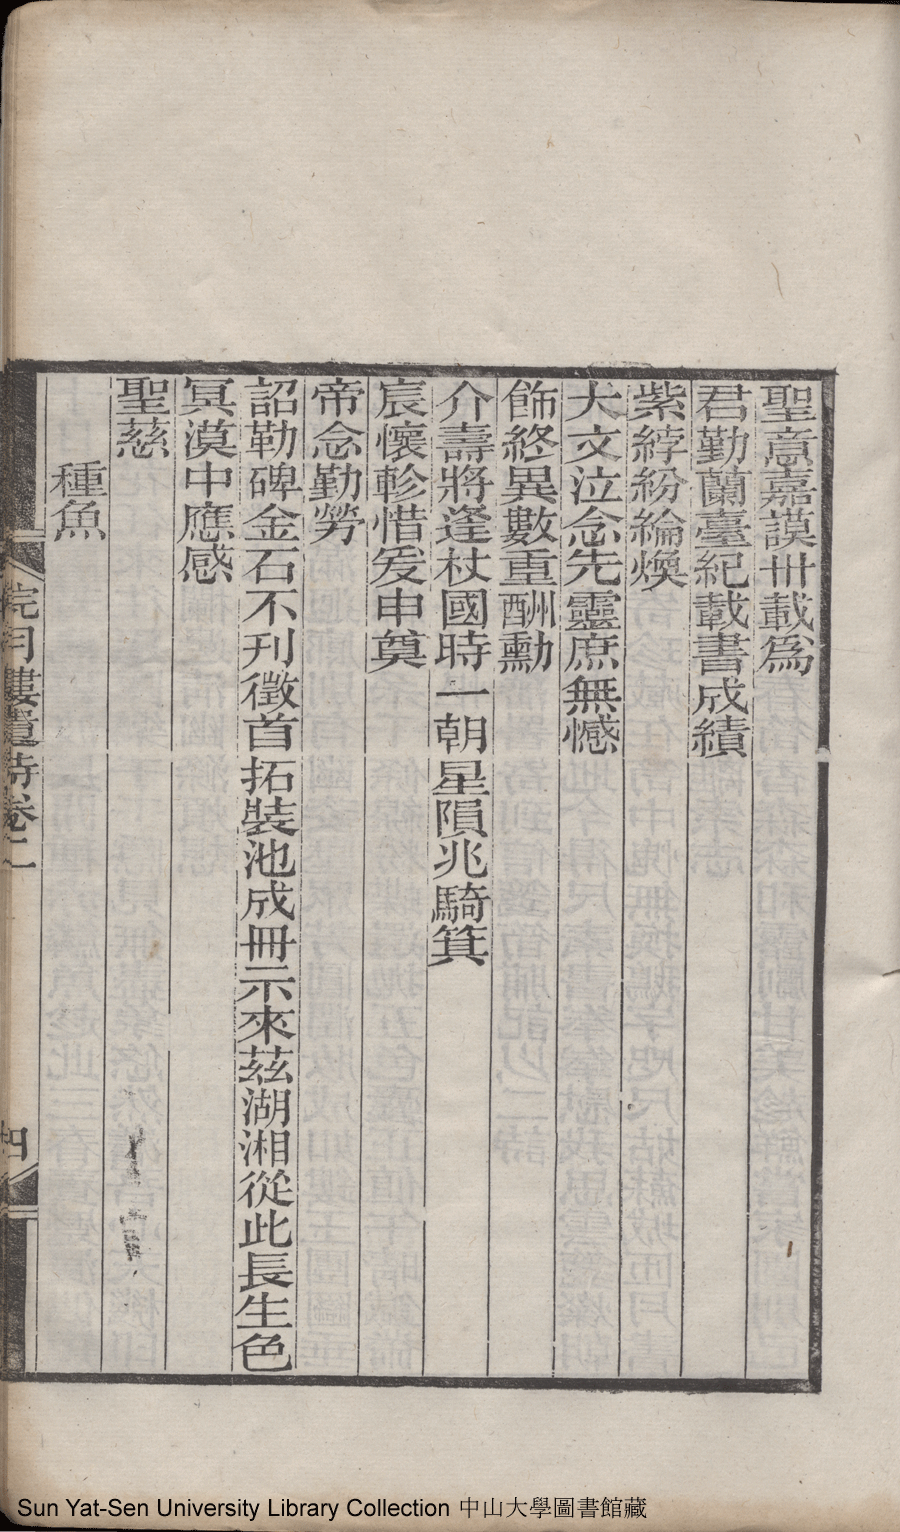 聖意嘉謨卅載爲
君勤蘭臺紀載書成績
紫綍紛綸煥
大文泣念先靈庶無憾
飾終異數重酬勳
介壽將逢杖國時一朝星隕兆騎箕
宸懷軫惜爰申奠
帝念勤勞
詔勒碑金石不刋徵首拓裝池成冊示來茲湖湘從此長生色
冥漠中應感
聖慈
種魚
月樓遺詩卷二
四
Sun Yat-Sen University Library Collection 中山大學圖書館藏